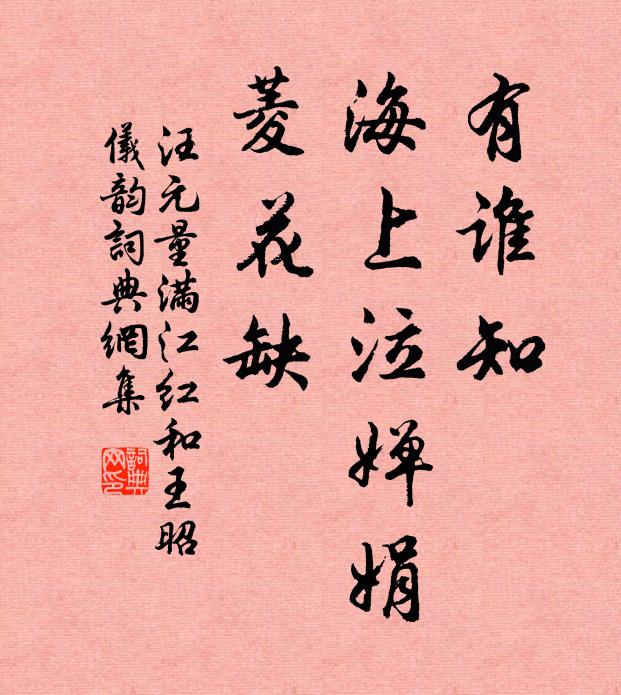 有谁知
海上泣婵娟
菱花缺
汪元量满江红和王昭
儀韵詞典網集
詞典網印